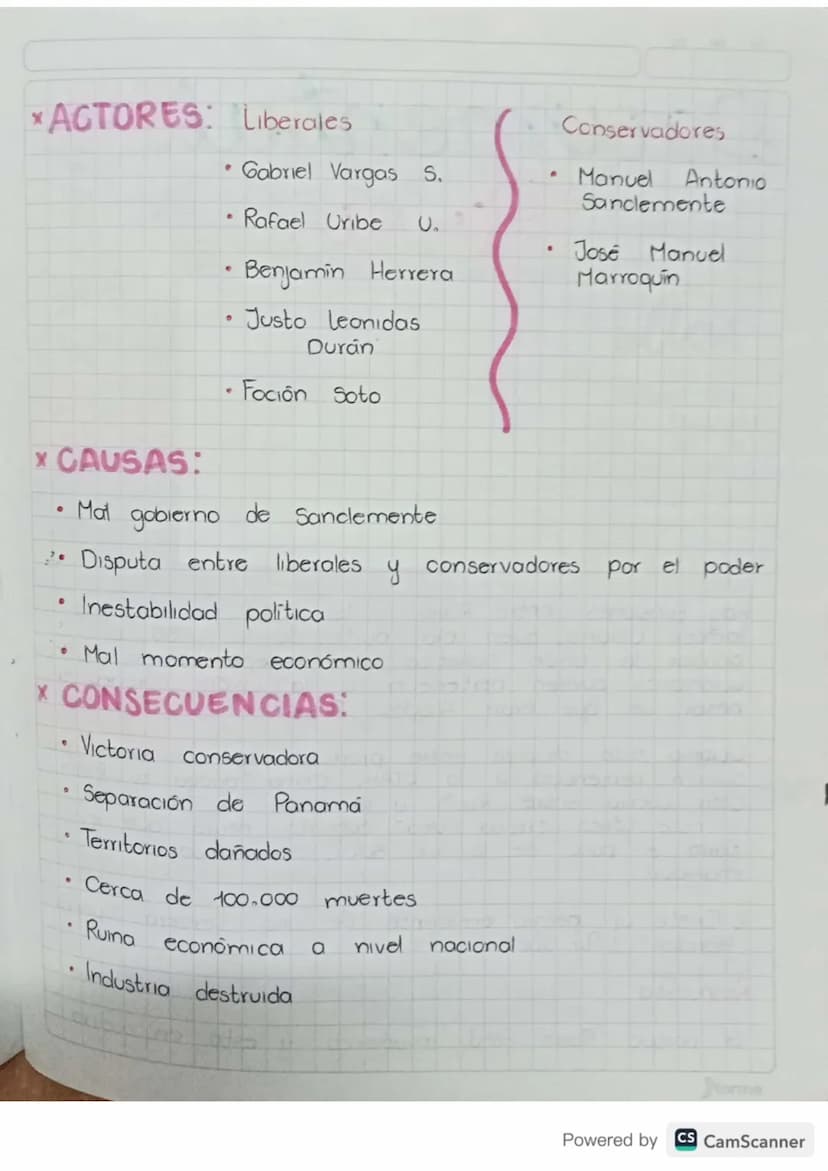 x ACTORES: Liberales
• Gabriel Vargas S.
• Rafael Uribe U.
• Benjamín Herrera
• Justo Leonidas
Durán
• Foción Soto
Conservadores
• Manuel Antonio
Sanclemente
• José Manuel
Marroquín
x CAUSAS:
• Mal gobierno de Sanclemente
• Disputa entre liberales y conservadores por el poder
• Inestabilidad política
• Mal momento económico
x CONSECUENCIAS:
• Victoria conservadora
• Separación de Panamá
• Territorios dañados
• Cerca de 100.000 muertes
• Ruina económica a nivel nacional
• Industria destruida
Powered by CS CamScanner